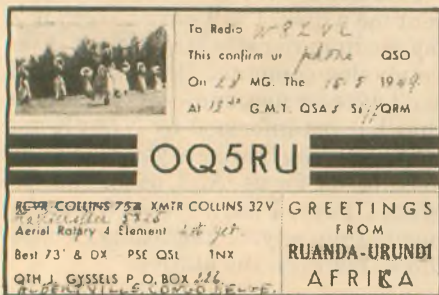 To Radio W8ZVL
This confirm ur phone QSO
On 28 MG. The 15-5 1949
At G.M.T. QSA 5 QRM
OQ5RU
RCVR COLLINS 75A XMTR COLLINS 32V
Hallicrafter
Aerial Rotary 4 Element not yet
Best 73' & DX PSE QSL TNX
QTH J. GYSSELS P.O. BOX 226.
ALBERTVILLE. CONGO BELGE.
GREETINGS
FROM
RUANDA-URUNDI
AFRIKA